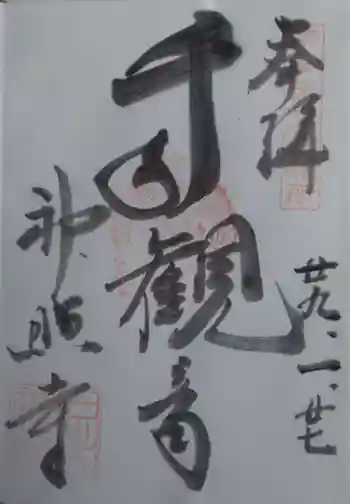 奉拝
廿九、一、廿七
千手観音
神照寺